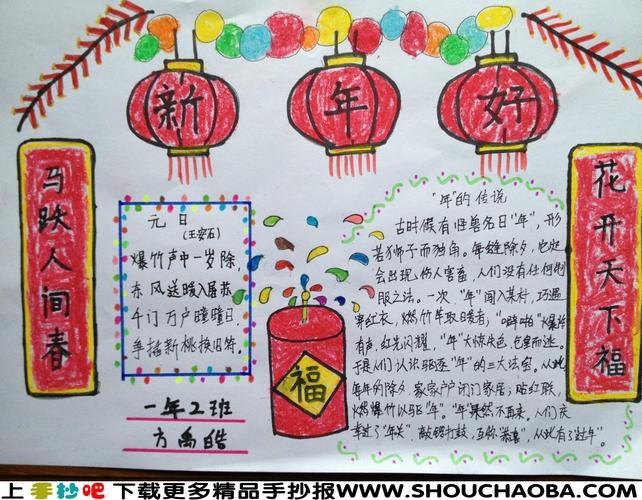 新年好
马跃人间春
花开天下福
元日
(王安石)
爆竹声中一岁除,
东风送暖入屠苏
千门万户曈曈日,
手插新桃换旧符.
一年2班
方禹皓
福
"年"的传说
古时候有怪兽名曰"年",形
若狮子而独角。每逢除夕,
会出现,伤人害畜,人们没有任何制
服之法。一次,"年"闯入某村,巧遇
穿红衣,燃竹
有声,红光闪耀,"年"大惊失色,
于是人们认识驱逐"年"的三大法宝。从此
每年的除夕,家家户户闭门家居;贴红联,
燃爆竹以驱"年"。"年"果然不再来。人们
"年关",敲锣打鼓,互称"恭喜",从此有了过年"。
上手抄吧 下载更多精品手抄报WWW.SHOUCHAOBA.COM